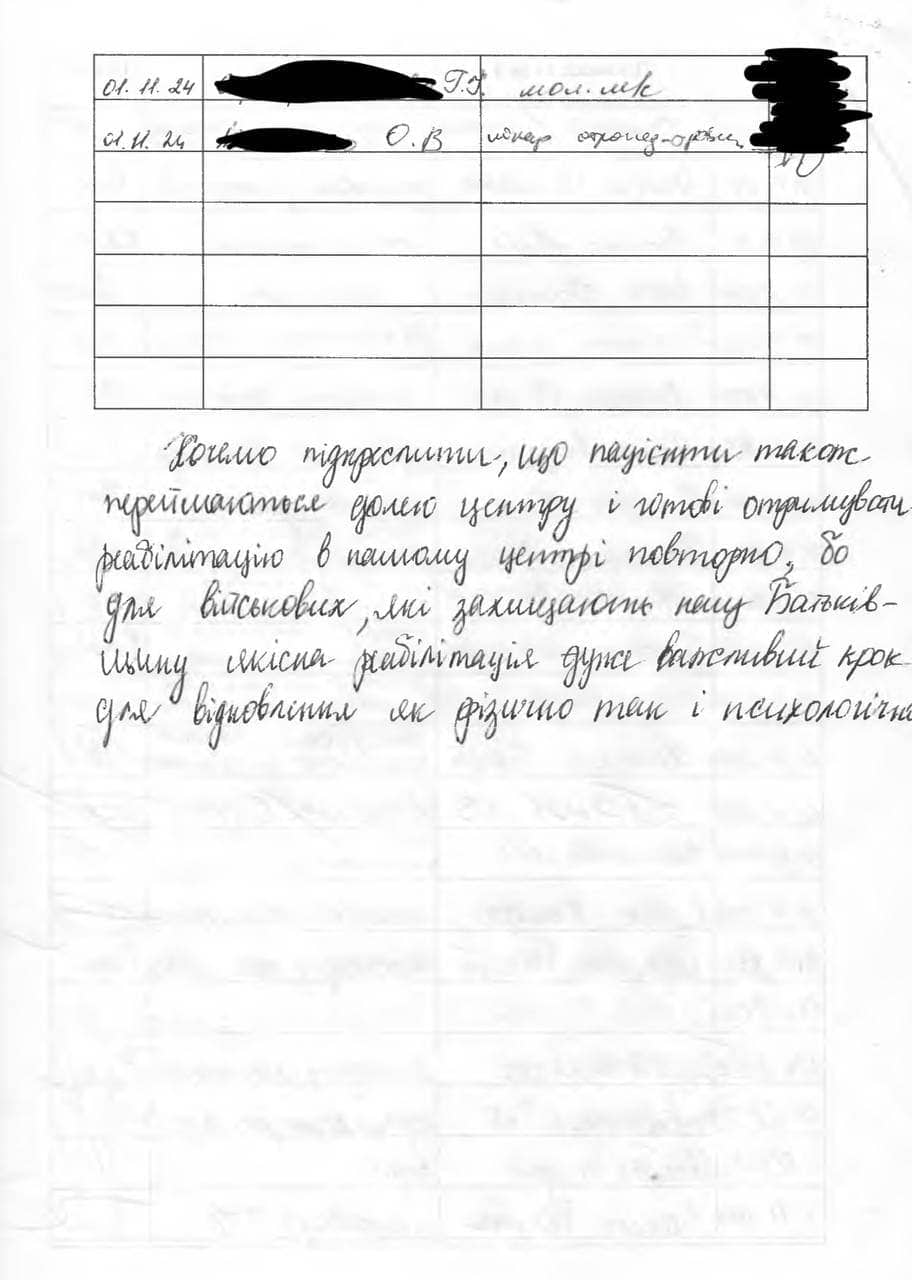 01.11.24 Г.Г. мол. мк
01.11.24 О.В лікар ортопед-
Хочемо підкреслити, що пацієнти також
переймаються долею центру і готові отримувати
реабілітацію в нашому центрі повторно, бо
для військових, які захищають нашу Батьків-
щину якісна реабілітація дуже важливий крок
для відновлення як фізично так і психологічно